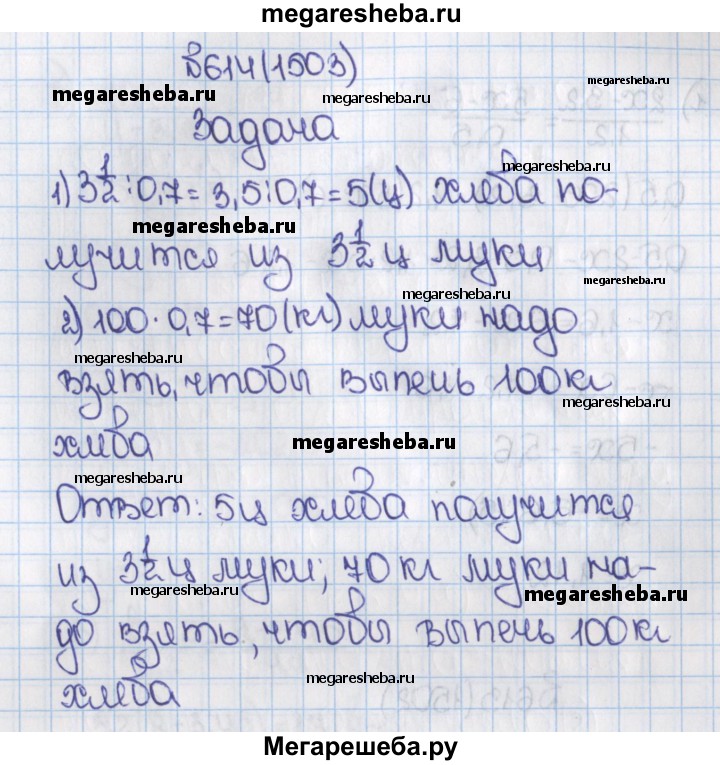 megaresheba.ru
№614(1503)
megaresheba.ru
megaresheba.ru
megaresheba.ru
Задача
megaresheba.ru
1) 3 1/2 : 0,7 = 3,5 : 0,7 = 5(ц) хлеба по-
megaresheba.ru
лучится из 3 1/2 ц муки
megaresheba.ru
megaresheba.ru
2) 100 · 0,7 = 70(кг) муки надо
megaresheba.ru
взять, чтобы выпечь 100 кг
megaresheba.ru
хлеба
megaresheba.ru
megaresheba.ru
Ответ: 5ц хлеба получится
из 3 1/2 ц муки; 70 кг муки на-
megaresheba.ru
megaresheba.ru
до взять, чтобы выпечь 100кг
хлеба
megaresheba.ru
Мегарешеба.ру